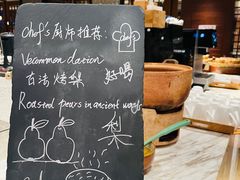 Chef's厨房推荐:
Vecommendation
古法烤梨 好喝
Roasted pears in ancient ways
梨